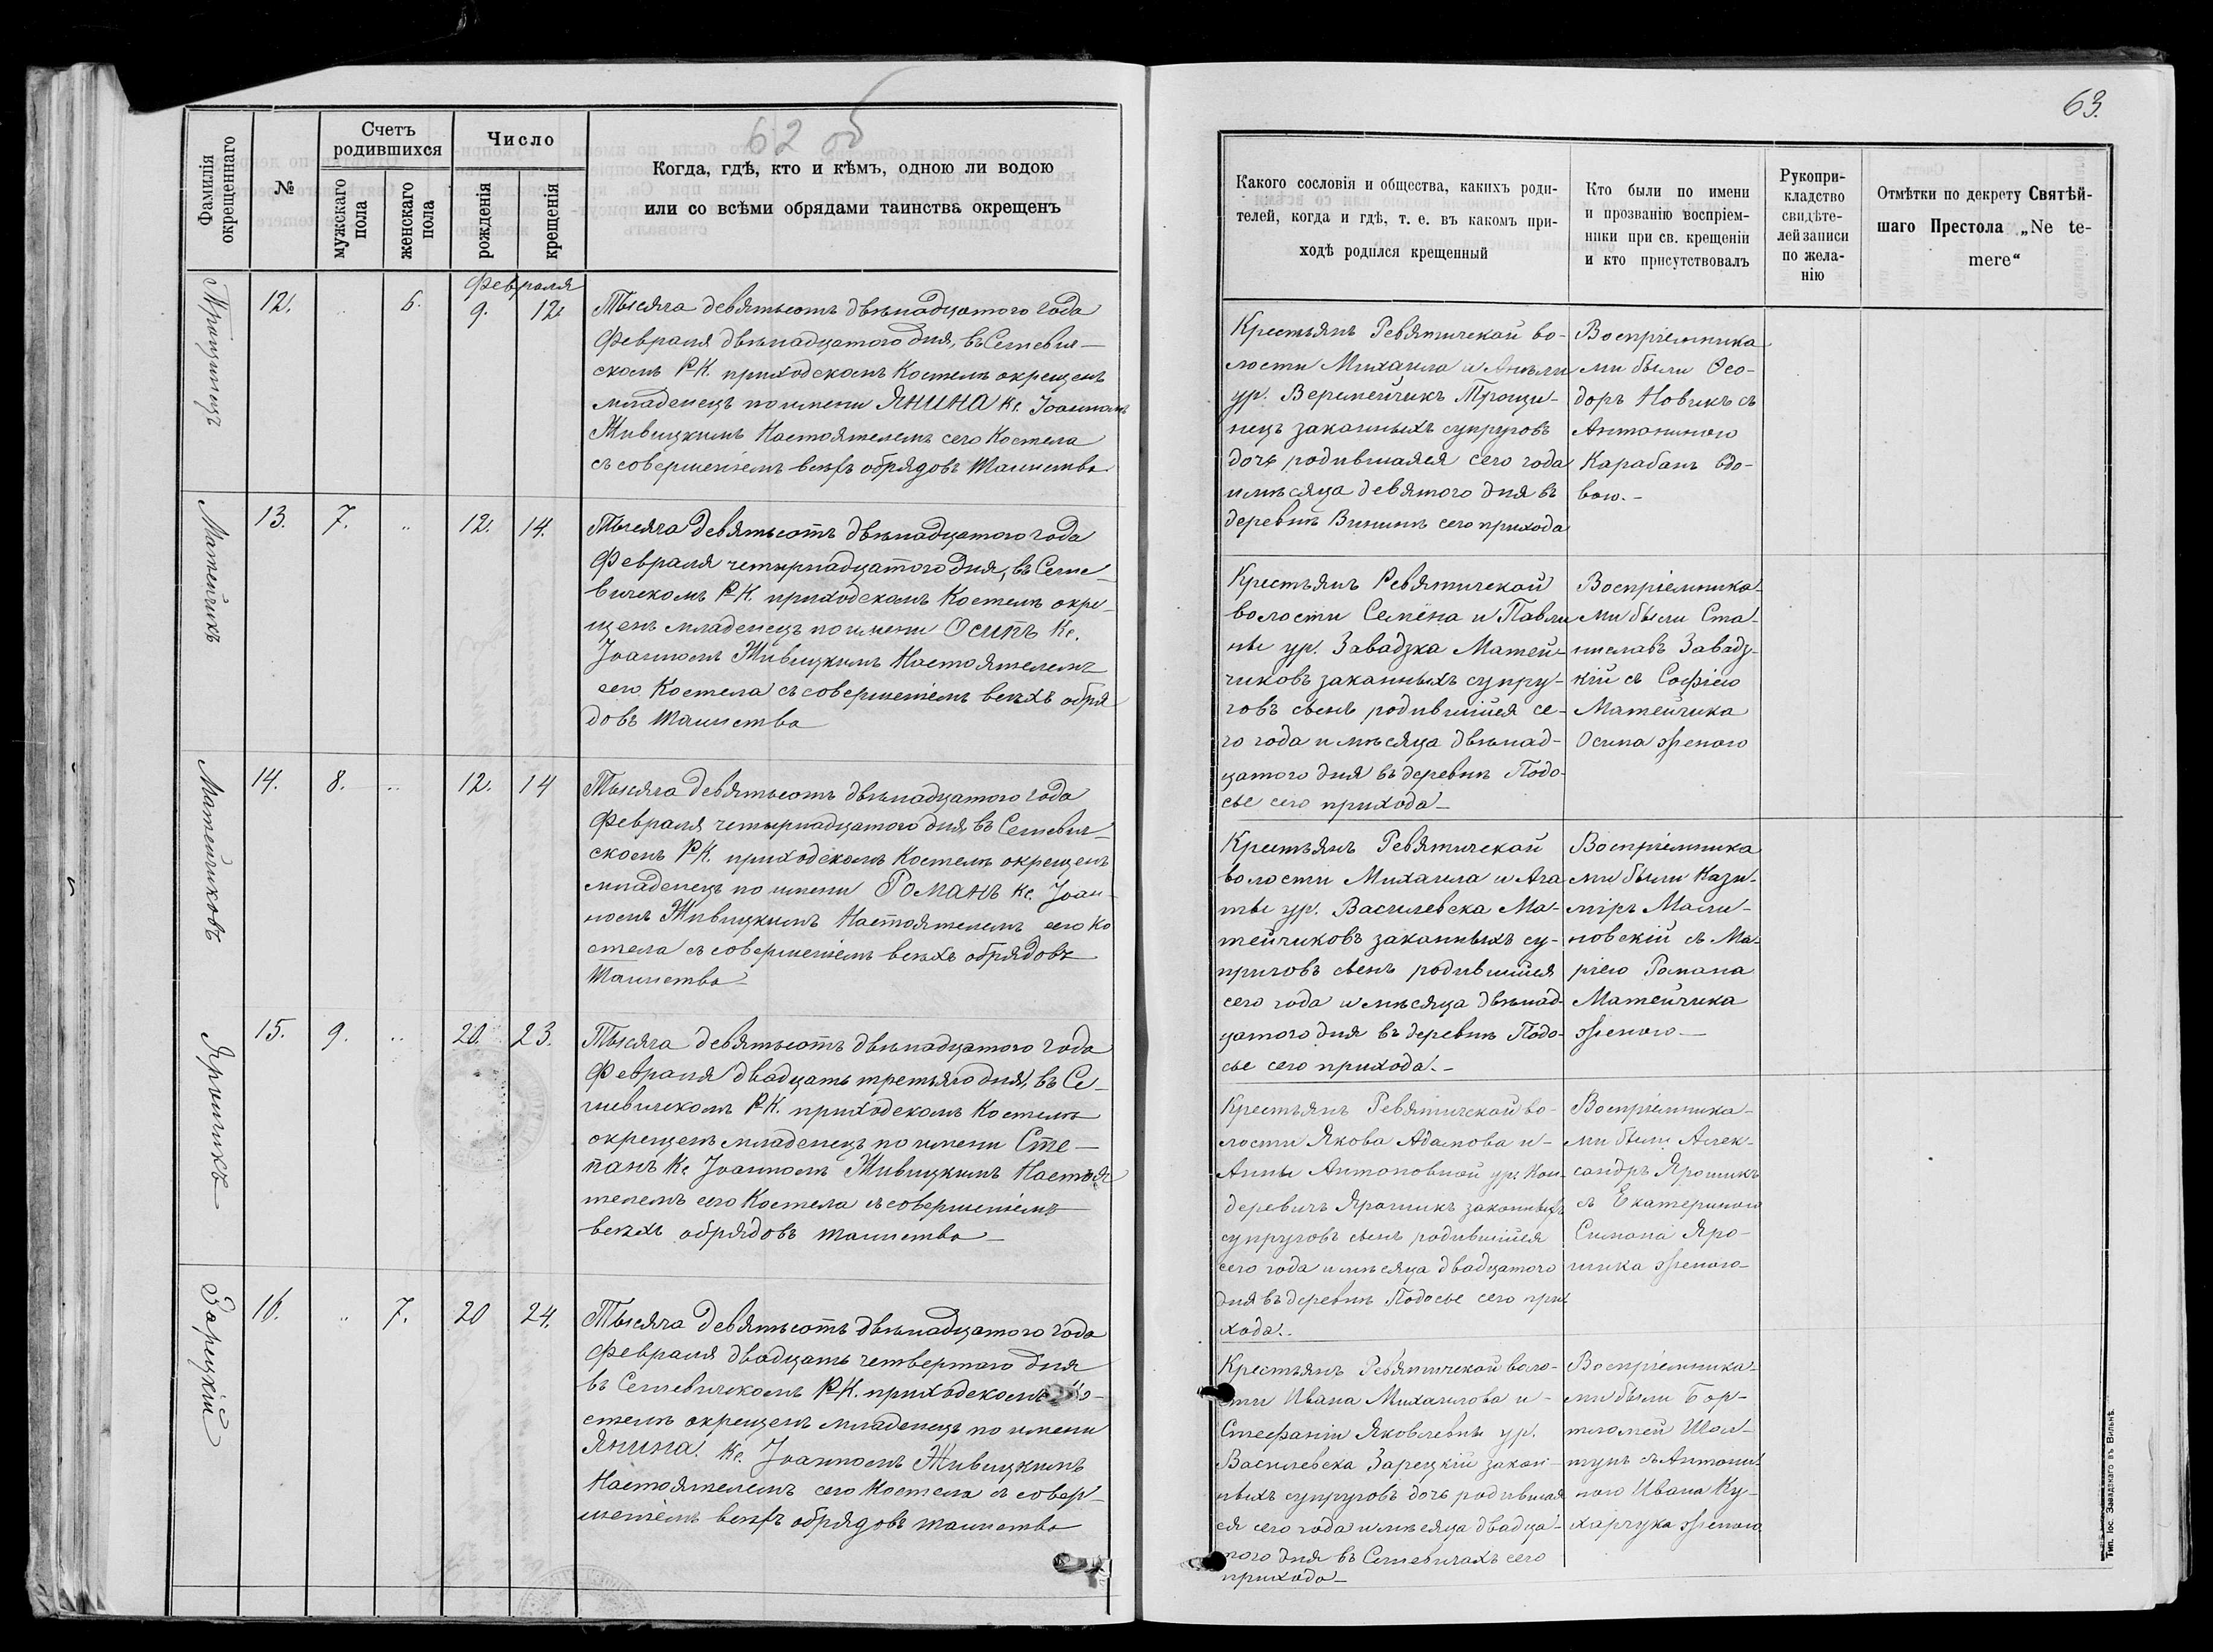 62 об
Фамилія окрещеннаго
№
Счетъ родившихся
мужскаго пола
женскаго пола
Число
рожденія
крещенія
Когда, гдѣ, кто и кѣмъ, одною ли водою
или со всѣми обрядами таинства окрещенъ
Февраля
Трощинецъ
12.
„
6.
9.
12.
Тысяча девятьсотъ двѣнадцатого года
Февраля двѣнадцатого дня, въ Сегневи-
скомъ Р-К. приходскомъ Костелѣ окрещенъ
младенецъ по имени ЯНИНА Кс. Іоанномъ
Живицкимъ Настоятелемъ сего Костела
съ совершеніемъ всѣхъ обрядовъ таинства
Матейчикъ
13.
7.
„
12.
14.
Тысяча девятьсотъ двѣнадцатого года
Февраля четырнадцатого дня, въ Сегне-
вичскомъ Р-К. приходскомъ Костелѣ окре-
щенъ младенецъ по имени Осипъ Кс.
Іоанномъ Живицкимъ Настоятелемъ
сего Костела съ совершеніемъ всѣхъ обря
довъ таинства
Матейчиковъ
14.
8.
„
12.
14
Тысяча девятьсотъ двѣнадцатого года
Февраля четырнадцатого дня въ Сегневич-
скомъ Р-К. приходскомъ Костелѣ окрещенъ
младенецъ по имени Романъ Кс. Іоан-
номъ Живицкимъ Настоятелемъ сего Ко
стела съ совершеніемъ всѣхъ обрядовъ
таинства
Ярошикъ
15.
9.
„
20.
23.
Тысяча девятьсотъ двѣнадцатого года
Февраля двадцать третьяго дня, въ Се-
гневичскомъ Р-К. приходскомъ Костелѣ
окрещенъ младенецъ по имени Сте-
панъ Кс Іоанномъ Живицкимъ Настоя
телемъ сего Костела съ совершеніемъ
всѣхъ обрядовъ таинства
Зарецкій
16.
„
7.
20
24.
Тысяча девятьсотъ двѣнадцатого года
Февраля двадцать четвертаго дня
въ Сегневичскомъ Р-К. приходскомъ Ко-
стелѣ окрещенъ младенецъ по имени
Янина. Кс. Іоанномъ Живицкимъ
Настоятелемъ сего Костела съ совер-
шеніемъ всѣхъ обрядовъ таинства
63.
Какого сословія и общества, какихъ роди-
телей, когда и гдѣ, т. е. въ какомъ при-
ходѣ родился крещенный
Кто были по имени
и прозванію воспріем-
ники при св. крещеніи
и кто присутствовалъ
Рукопри-
кладство
свидѣте-
лей записи
по жела-
нію
Отмѣтки по декрету Святѣй-
шаго Престола „Ne te-
mere“
Крестьянъ Ревятичской во-
лости Михаила и Анѣли
ур. Веремейчикъ Трощи-
нецъ законныхъ супруговъ
дочь родившаяся сего года
и мѣсяца девятого дня въ
деревнѣ Вининѣ сего прихода
Воспріемника
ми были Ѳео-
доръ Новикъ съ
Антониною
Карабанъ вдо-
вою.-
Крестьянъ Ревятичской
волости Семёна и Павли
ны ур. Завадзка Матей-
чиковъ законныхъ супру-
говъ сынъ родившійся се-
го года и мѣсяца двѣнад-
цатого дня въ деревнѣ Подо-
сье сего прихода
Воспріемника-
ми были Ста-
ниславъ Завадз-
кій съ Софіею
Матейчика
Осипа женою
Крестьянъ Ревятичской
волости Михаила и Ага
ты ур. Василевска Ма-
тейчиковъ законныхъ су-
пруговъ сынъ родившійся
сего года и мѣсяца двѣнад-
цатого дня въ деревнѣ Подо-
сье сего прихода.-
Воспріемника
ми были Кази-
міръ Мали-
новскій съ Ма-
ріею Романа
Матейчика
женою
Крестьянъ Ревятичской во-
лости Якова Адамова и
Анны Антоновной ур. Кон-
деревичъ Ярошикъ законныхъ
супруговъ сынъ родившійся
сего года и мѣсяца двадцатого
дня въ деревнѣ Подосье сего при
хода.
Воспріемника-
ми были Алек-
сандръ Ярошикъ
съ Екатериною
Симона Яро-
шика женою
Крестьянъ Ревятичской воло-
сти Ивана Михаилова и
Стефаніи Яковлевны ур.
Василевска Зарецкій закон-
ныхъ супруговъ дочь родившая
ся сего года и мѣсяца двадца-
того дня въ Сегневичахъ сего
прихода
Воспріемника-
ми были Бар-
тломей Шол-
тунъ съ Антони-
ною Ивана Ку-
харчука женою
Тип. Іос. Завадзкаго въ Вильнѣ.